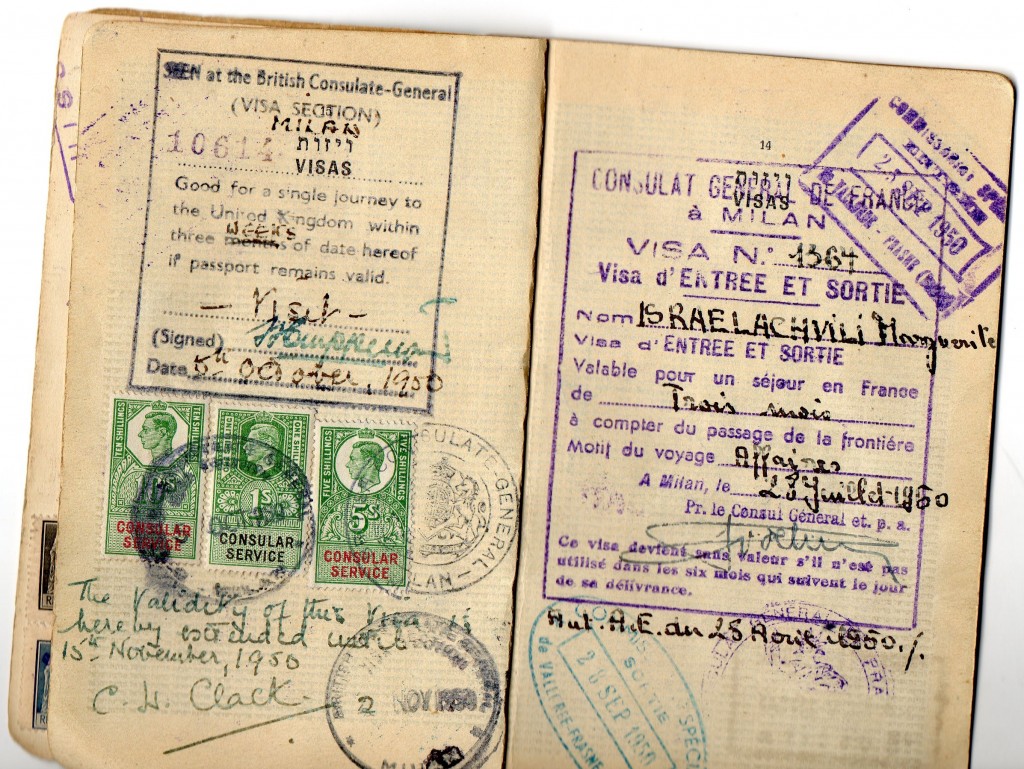 SEEN at the British Consulate-General
(VISA SECTION)
MILAN
10614
ויזות
VISAS
Good for a single journey to
the United Kingdom within
WEEKS
three months of date hereof
if passport remains valid.
— Visit —
(Signed)
Date 5th October, 1950
TEN SHILLINGS
TEN SHILLINGS
CONSULAR
SERVICE
ONE SHILLING
1S
CONSULAR
SERVICE
FIVE SHILLINGS
FIVE SHILLINGS
5S
CONSULAR
SERVICE
CONSULATE-GENERAL
MILAN
The Validity of this Visa is
hereby extended until
15th November, 1950
C. H. Clack
2 NOV 1950
MILAN
14
ויזות
VISAS
CONSULAT GENERAL DE FRANCE
à MILAN
VISA N.° 1364
Visa d'ENTREE ET SORTIE
Nom ISRAELACHVILI Marguerite
Visa d'ENTREE ET SORTIE
Valable pour un séjour en France
de Trois mois
à compter du passage de la frontière
Motif du voyage Affaires
A Milan, le 28 Juillet 1950
Pr. le Consul Général et. p. a.
Ce visa devient sans valeur s'il n'est pas
utilisé dans les six mois qui suivent le jour
de sa délivrance.
Aut. A.E. du 25 Avril 1950./.
COMMISSARIAT SPÉ
SEP 1950
SPÉC
SORTIE
28 SEP 1950
de VALLORBE-FRASNE